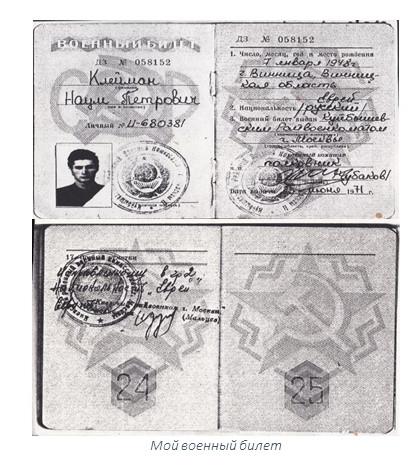 ВОЕННЫЙ БИЛЕТ
ДЗ № 058152
Клейман
Наум Петрович
Личный № Ц-680381
ДЗ № 058152
1. Число, месяц, год и место рождения
7 января 1948 г
г Винница, Винниц-
кая область
еврей
2. Национальность (русский)
3. Военный билет выдан Куйбышев-
ским Райвоенкоматом
г. Москвы
полковник
Дата выдачи июня 1971 г.
17. отметки
Исправленному в гр 2
национальность "Еврей"
верить
Военком г. Москвы
(Мальцев)
24
25
Мой военный билет